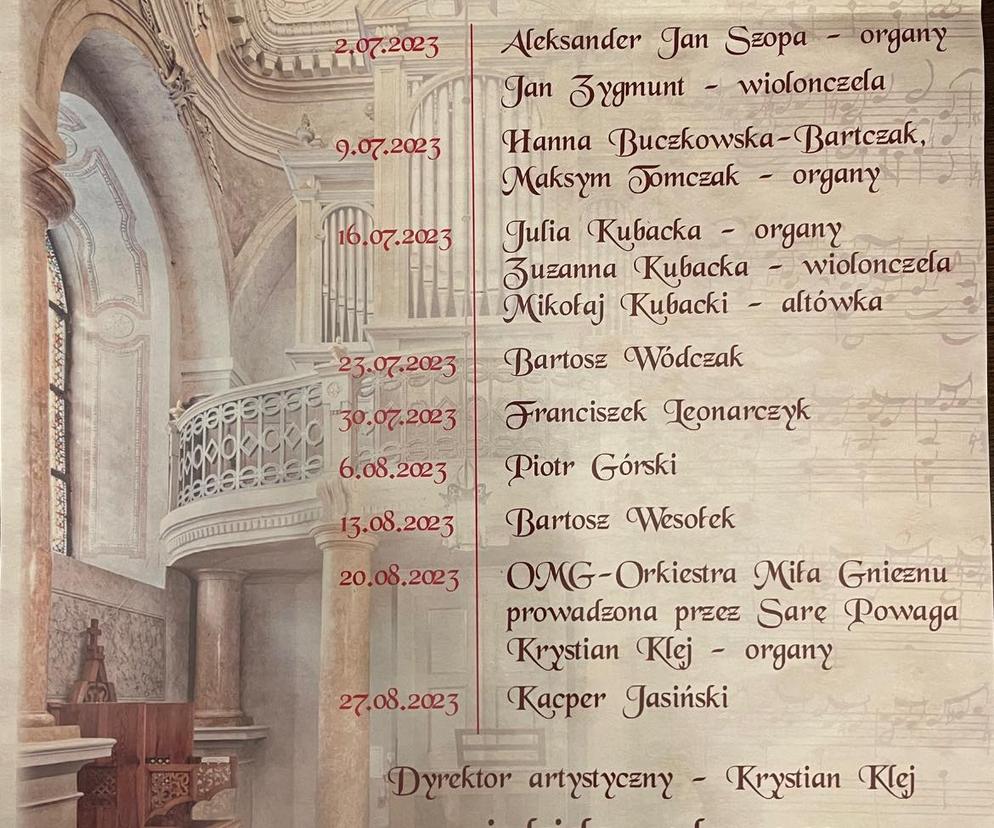 2.07.2023 Aleksander Jan Szopa - organy
Jan Zygmunt - wiolonczela
9.07.2023 Hanna Buczkowska-Bartczak,
Maksym Tomczak - organy
16.07.2023 Julia Kubacka - organy
Zuzanna Kubacka - wiolonczela
Mikołaj Kubacki - altówka
23.07.2023 Bartosz Wódczak
30.07.2023 Franciszek Leonarczyk
6.08.2023 Piotr Górski
13.08.2023 Bartosz Wesołek
20.08.2023 OMG-Orkiestra Miła Gnieznu
prowadzona przez Sarę Powaga
Krystian Klej - organy
27.08.2023 Kacper Jasiński
Dyrektor artystyczny - Krystian Klej